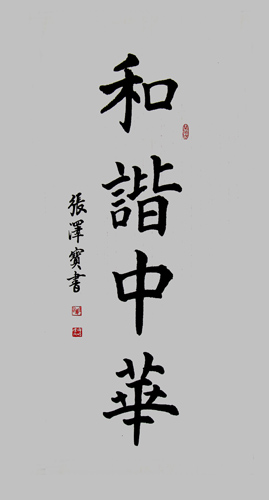 和諧中華
張澤寳書